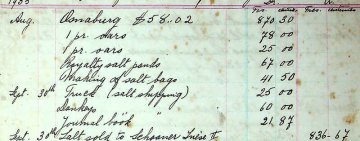 Aug. Osnaburg $58.02 870 30
1 pr. oars 78 00
1 pr. oars 25 00
Royalty salt ponds 67 00
Making of salt bags 41 50
Sept. 30th Truck (salt shipping) 25 00
Donkeys 60 00
Journal book " 21,87
Sept. 30th Salt sold to Schooner 836-67